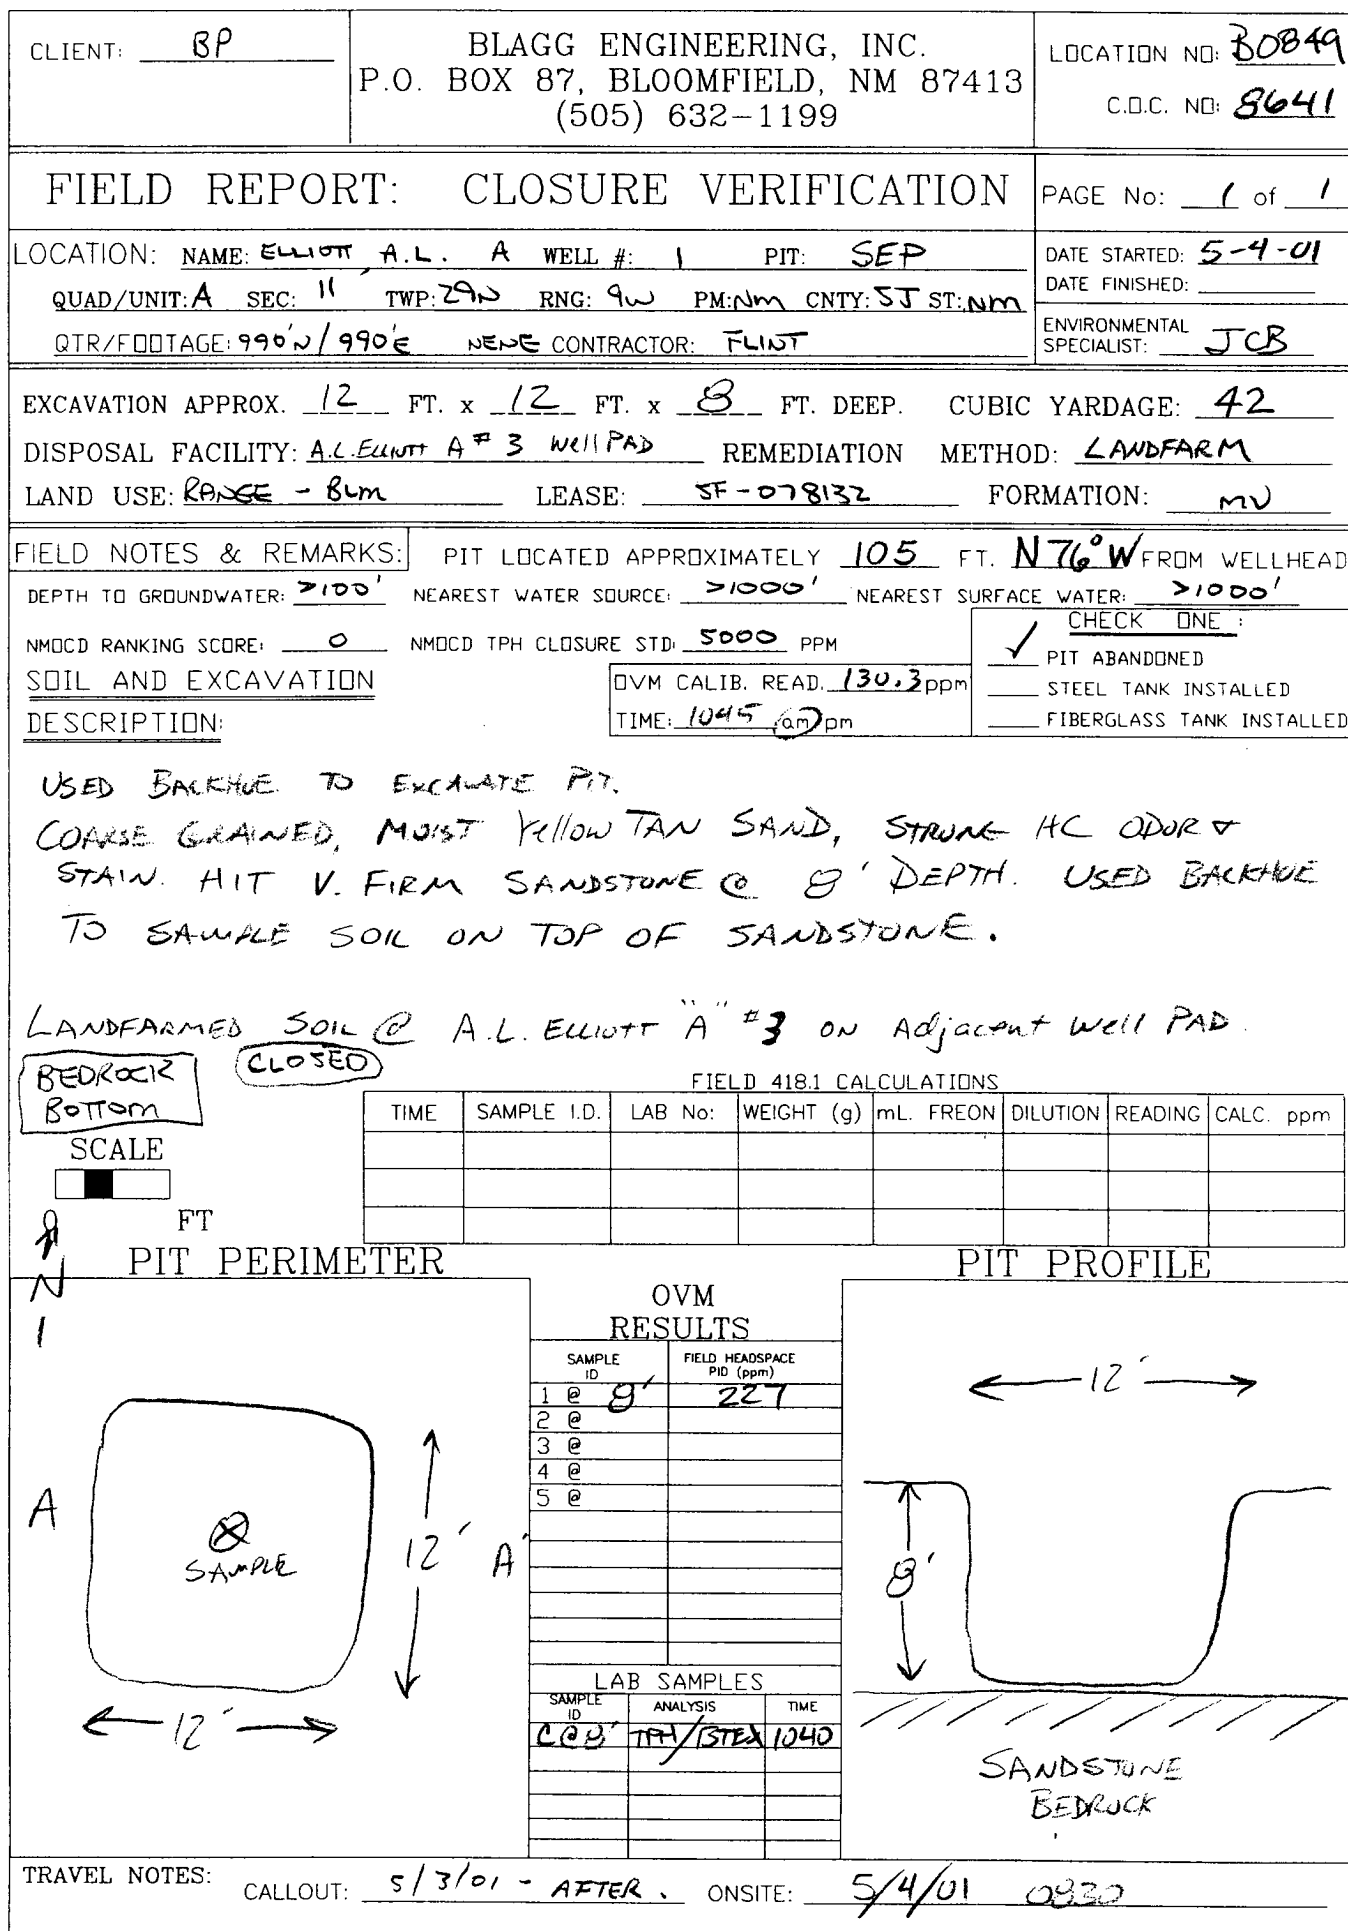 CLIENT: BP
BLAGG ENGINEERING, INC.
P.O. BOX 87, BLOOMFIELD, NM 87413
(505) 632-1199
LOCATION NO: B0849
C.O.C. NO: 8641
FIELD REPORT: CLOSURE VERIFICATION
PAGE No: 1 of 1
LOCATION: NAME: ELLIOTT, A.L. A WELL #: 1 PIT: SEP
QUAD/UNIT: A SEC: 11 TWP: 29N RNG: 9W PM: NM CNTY: SJ ST: NM
QTR/FOOTAGE: 990'N/990'E NENE CONTRACTOR: FLINT
DATE STARTED: 5-4-01
DATE FINISHED:
ENVIRONMENTAL
SPECIALIST: JCB
EXCAVATION APPROX. 12 FT. x 12 FT. x 8 FT. DEEP. CUBIC YARDAGE: 42
DISPOSAL FACILITY: A.L. ELLIOTT A #3 Well PAD REMEDIATION METHOD: LANDFARM
LAND USE: RANGE - BLM LEASE: SF-078132 FORMATION: MV
FIELD NOTES & REMARKS: PIT LOCATED APPROXIMATELY 105 FT. N76°W FROM WELLHEAD
DEPTH TO GROUNDWATER: >100' NEAREST WATER SOURCE: >1000' NEAREST SURFACE WATER: >1000'
NMOCD RANKING SCORE: 0 NMOCD TPH CLOSURE STD: 5000 PPM
CHECK ONE :
✓ PIT ABANDONED
STEEL TANK INSTALLED
FIBERGLASS TANK INSTALLED
SOIL AND EXCAVATION
DESCRIPTION:
OVM CALIB. READ. 130.3 ppm
TIME: 1045 am pm
USED BACKHOE TO EXCAVATE PIT.
COARSE GRAINED, MOIST Yellow TAN SAND, STRONG HC ODOR &
STAIN. HIT V. FIRM SANDSTONE @ 8' DEPTH. USED BACKHOE
TO SAMPLE SOIL ON TOP OF SANDSTONE.
LANDFARMED SOIL @ A.L. ELLIOTT "A" #3 ON Adjacent Well PAD.
BEDROCK
BOTTOM
CLOSED
SCALE
FT
N
FIELD 418.1 CALCULATIONS
TIME SAMPLE I.D. LAB No: WEIGHT (g) mL. FREON DILUTION READING CALC. ppm
PIT PERIMETER
PIT PROFILE
OVM
RESULTS
SAMPLE
ID
FIELD HEADSPACE
PID (ppm)
1 @ 8' 227
2 @
3 @
4 @
5 @
A
SAMPLE
12'
A'
12'
LAB SAMPLES
SAMPLE
ID
ANALYSIS
TIME
C@8' TPH/BTEX 1040
12'
8'
SANDSTONE
BEDROCK
TRAVEL NOTES:
CALLOUT: 5/3/01 - AFTER. ONSITE: 5/4/01 0830